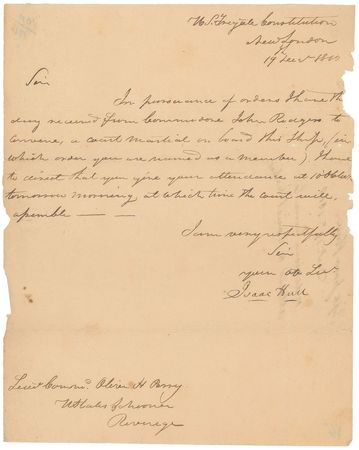 U.S. Frigate Constitution
New London
19th Decr
Sir
In pursuance of orders I have this
day received from Commodore John Rodgers to
convene, a court martial on board this Ship, (in
which order you are named as a member) I have
to direct that you give your attendance at 10 oClock
tomorrow morning, at which time the court will,
assemble — —
I am very respectfully
Sir
your ob Sert
Isaac Hull
Lieut Comg. Oliver H Perry
U States Schooner
Revenge